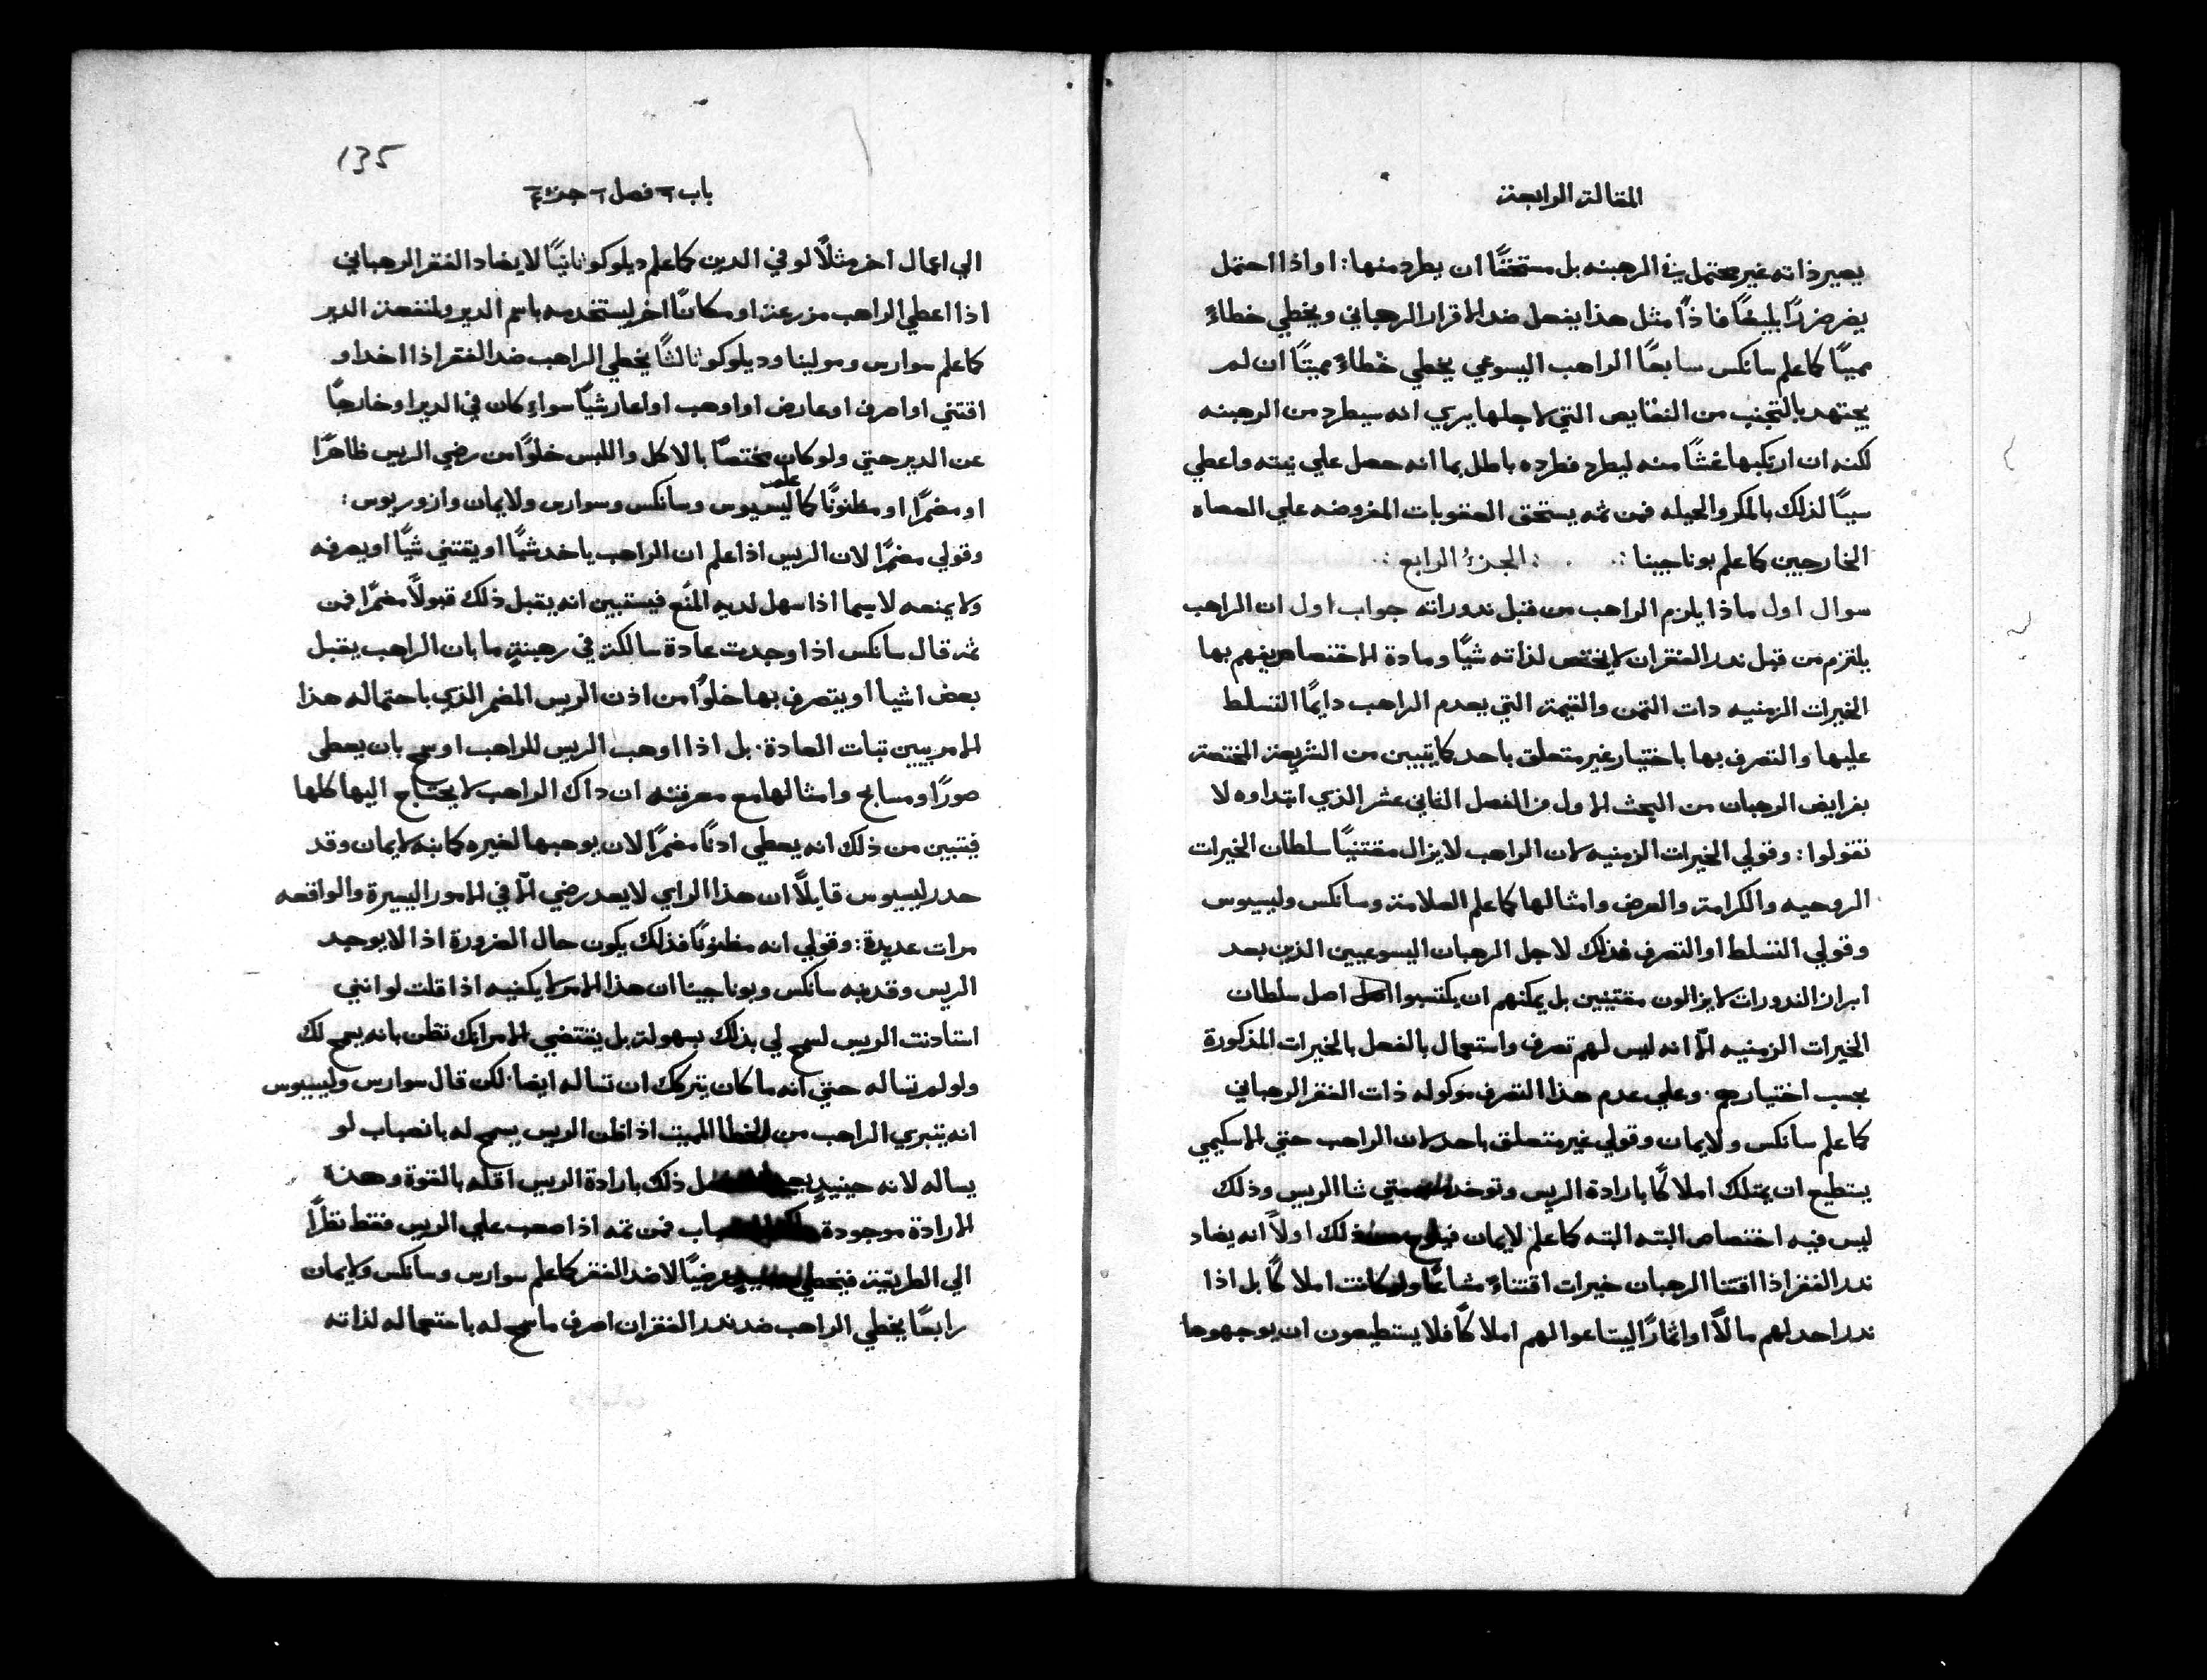 المقالة الرابعة
يصير ذاته غير محتمل في الرهبنه بل مستحقًا ان يطرد منها: او اذا احتمل
يضر ضررًا بليغًا فاذًا مثل هذا يفعل ضد الاقرار الرهباني ويخطي خطاءً
مميتًا كما علم سانكس سابعًا الراهب اليسوعي يخطي خطاءً مميتًا ان لم
يجتهد بالتجنب من النقايص التي لاجلها يري انه سيطرد من الرهبنه
لكنه ان ارتكبها غشًا منه ليطرد فطرده باطل بما انه حصل علي نيته واعطي
سببًا لذلك بالمكر والحيله فمن ثمه يستحق العقوبات المفروضه علي العصاه
الخارجين كما علم بوناجينا :. :الجزءُ الرابع :.
سوال اول ماذا يلزم الراهب من قبل ندوراته جواب اول ان الراهب
يلتزم من قبل ندر الفقر ان لا يختص لذاته شيًا ومادة الاختصاص يفهم بها
الخيرات الزمنيه دات التمن والقيمة التي يعدم الراهب دايمًا التسلط
عليها والتصرف بها باختيار غير متعلق باحد كما يتبين من الشريعة المختصة
بفرايض الرهبان من البحث الاول من الفصل الثاني عشر الذي ابتداوه لا
تقولوا: وقولي الخيرات الزمنيه لان الراهب لا يزال مقتنيًا سلطان الخيرات
الروحيه والكرامة والعرض وامثالها كما علم العلامة وسانكس وليسيوس
وقولي التسلط او التصرف فذلك لاجل الرهبان اليسوعيين الذين بعد
ابراز الندورات لا يزالون مقتنيين بل يمكنهم ان يكتسبوا اصل سلطان
الخيرات الزمنيه الّا انه ليس لهم تصرف واستعمال بالفعل بالخيرات المذكورة
بحسب اختيارهم. وعلي عدم هذا التصرف موكوله ذات الفقر الرهباني
كما علم سانكس ولايمان وقولي غير متعلق باحد لان الراهب حتي الاسكيمي
يستطيع ان يمتلك املاكًا بارادة الريس وتوخد متي شا الريس وذلك
ليس فيه اختصاص البته البته كما علم لايمان لك اولًا انه يضاد
ندر الفقر اذا اقتنا الرهبان خيرات اقتناءً مشاعًا ولو كانت املاكًا بل اذا
ندر احد لهم مالًا او اثمارًا ليبتاعوا لهم املاكًا فلا يستطيعون ان يوجهوها
135
باب ٦ فصل ٦ جزء ٤
الي اعمال اخر مثلًا لوفي الدين كما علم ديلوكو ثانيًا لا يضاد الفقر الرهباني
اذا اعطي الراهب مزرعة او مكانًا اخر ليستخدمه باسم الدير ولمنفعة الدير
كما علم سوارس ومولينا وديلوكو ثالثًا يخطي الراهب ضد الفقر اذا اخد او
اقتني او اصرف او عارض او اوهب او اعار شيًا سواءِ كان في الدير او خارجًا
عن الدير حتي ولو كان مختصًا بالاكل واللبس خلوًا من رضي الريس ظاهرًا
او مضمرًا او مظنونًا كما علم ليسيوس وسانكس وسوارس ولايمان وازوريوس:
وقولي مضمرًا لان الريس اذا علم ان الراهب ياخد شيًا او يقتني شيًا او يصرفه
ولا يمنعه لاسيما اذا سهل لديه المنع فيستبين انه يقبل ذلك قبولًا مضمرًا فمن
ثمه قال سانكس اذا وجدت عادة سالكة في رهبنةٍ ما بان الراهب يقبل
بعض اشيا او يتصرف بها خلوًا من اذن الريس المضمر الذي باحتماله هذا
الامر يبين تبات العادة. بل اذا اوهب الريس للراهب او سمح بان يعطي
صورًا ومسابح وامثالها مع معرفته ان داك الراهب لا يحتاج اليها كلها
فيتبين من ذلك انه يعطي ادنًا مضمرًا لان يوهبها لغيره كما نبه لايمان وقد
حدر ليسيوس قايلًا ان هذا الراي لا يعد رضي الّا في الامور اليسيرة والواقعه
مرات عديدة: وقولي انه مظنونًا فذلك يكون حال الضرورة اذا لا يوجد
الريس وقد نبه سانكس وبوناجينا ان هذا الامر لا يكفيه اذا قلت لو انني
استادنت الريس لسمح لي بذلك بسهولة بل يقتضي الامر انك تظن بانه يسمح لك
ولو لم تساله حتي انه ما كان يتركك ان تساله ايضا. لكن قال سوارس وليسيوس
انه يتبري الراهب من الخطا المميت اذا ظن الريس يسمح له بانصباب لو
يساله لانه حينيدٍ ذلك بارادة الريس اقله بالقوة وهذه
الارادة موجودة فمن ثمه اذا صعب علي الريس فقط نظرًا
الي الطريقة فيخطي عرضيًا لا ضد الفقر كما علم سوارس وسانكس ولايمان
رابعًا يخطي الراهب ضد ندر الفقر ان اصرف ما سمح له باستعماله لذاته